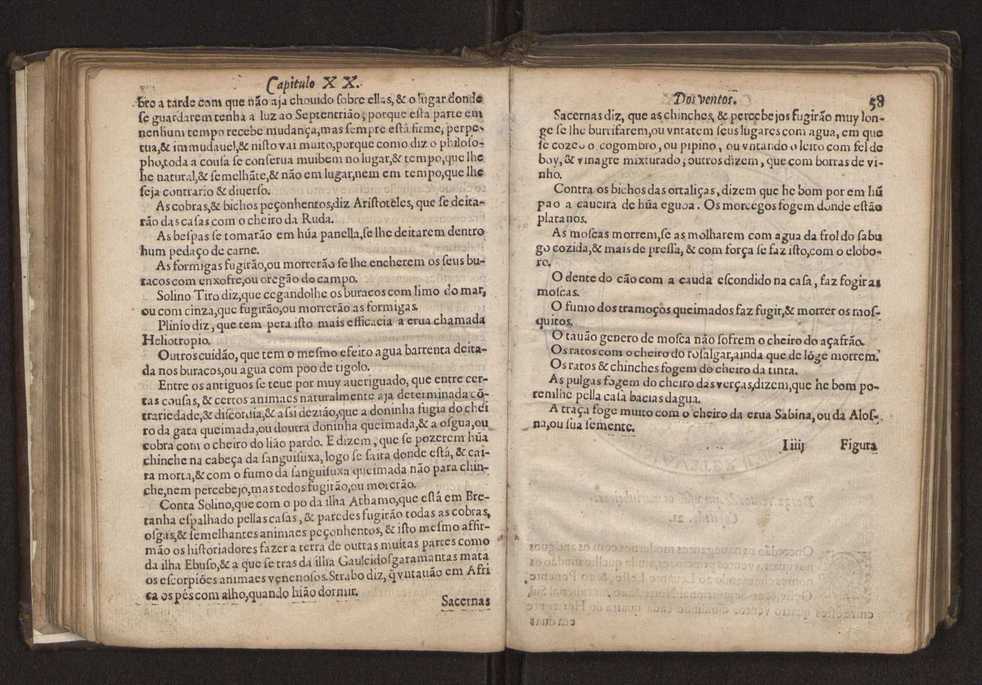 Capitulo XX.
bro a tarde com que não aja chouido sobre ellas, & o lugar donde
se guardarem tenha a luz ao Septentrião; porque esta parte em
nenhum tempo recebe mudança, mas sempre está firme, perpe-
tua, & immudauel, & nisto vai muito, porque como diz o philoso-
pho, toda a cousa se conserua mui bem no lugar, & tempo, que lhe
he natural, & semelhãte, & não em lugar, nem em tempo, que lhe
seja contrario & diuerso.
As cobras, & bichos peçonhentos, diz Aristoteles, que se deita-
rão das casas com o cheiro da Ruda.
As bespas se tomarão em húa panella, se lhe deitarem dentro
hum pedaço de carne.
As formigas fugirão, ou morrerão se lhe encherem os seus bu-
racos com enxofre, ou oregão do campo.
Solino Tiro diz, que cegandolhe os buracos com limo do mar,
ou com cinza, que fugirão, ou morrerão as formigas.
Plinio diz, que tem pera isto mais efficacia a erua chamada
Heliotropio.
Outros cuidão, que tem o mesmo efeito agua barrenta deita-
da nos buracos, ou agua com poo de tigolo.
Entre os antiguos se teue por muy aueriguado, que entre cer-
tas cousas, & certos animaes naturalmente aja determinada cõ-
trariedade, & discordia, & assi dezião, que a doninha fugia do chei
ro da gata queimada, ou doutra doninha queimada, & a osgua, ou
cobra com o cheiro do lião pardo. E dizem, que se pozerem húa
chinche na cabeça da sanguisuxa, logo se saira donde está, & cai-
ra morta, & com o fumo da sanguisuxa queimada não para chin-
che, nem percebejo, mas todos fugirão, ou morerão.
Conta Solino, que com o po da ilha Athamo, que está em Bre-
tanha espalhado pellas casas, & paredes fugirão todas as cobras,
osgas, & semelhantes animaes peçonhentos, & isto mesmo afir-
mão os historiadores fazer a terra de outras muitas partes como
da ilha Ebuso, & a que se tras da ilha Gauleidos garamantas mata
os escorpiões animaes venenosos. Strabo diz, q̃ vntauão em Afri
ca os pés com alho, quando hião dormir.
Sacernas
Dos ventos. 58
Sacernas diz, que as chinches, & percebejos fugirão muy lon-
ge se lhe burrifarem, ou vntarem seus lugares com agua, em que
se cozeo o cogombro, ou pipino, ou vntando o leito com fel de
boy, & vinagre mixturado; outros dizem, que com borras de vi-
nho.
Contra os bichos das ortaliças, dizem que he bom por em hũ
pao a caueira de húa egoa. Os morcegos fogem donde estão
platanos.
As moscas morrem, se as molharem com agua da frol do sabu
go cozida, & mais de pressa, & com força se faz isto, com o elobo-
ro.
O dente do cão com a cauda escondido na casa, faz fogir as
moscas.
O fumo dos tramoços queimados faz fugir, & morrer os mos-
quitos.
O tauão genero de mosca não sofrem o cheiro do açafrão.
Os ratos com o cheiro do rosalgar, ainda que de lóge morrem.
Os ratos & chinches fogem do cheiro da tinta.
As pulgas fogem do cheiro das verças, dizem, que he bom po-
renilhe pella casa bacias dagua.
A traça foge muito com o cheiro da erua Sabina, ou da Alos-
na, ou sua semente.
Iiiij Figura